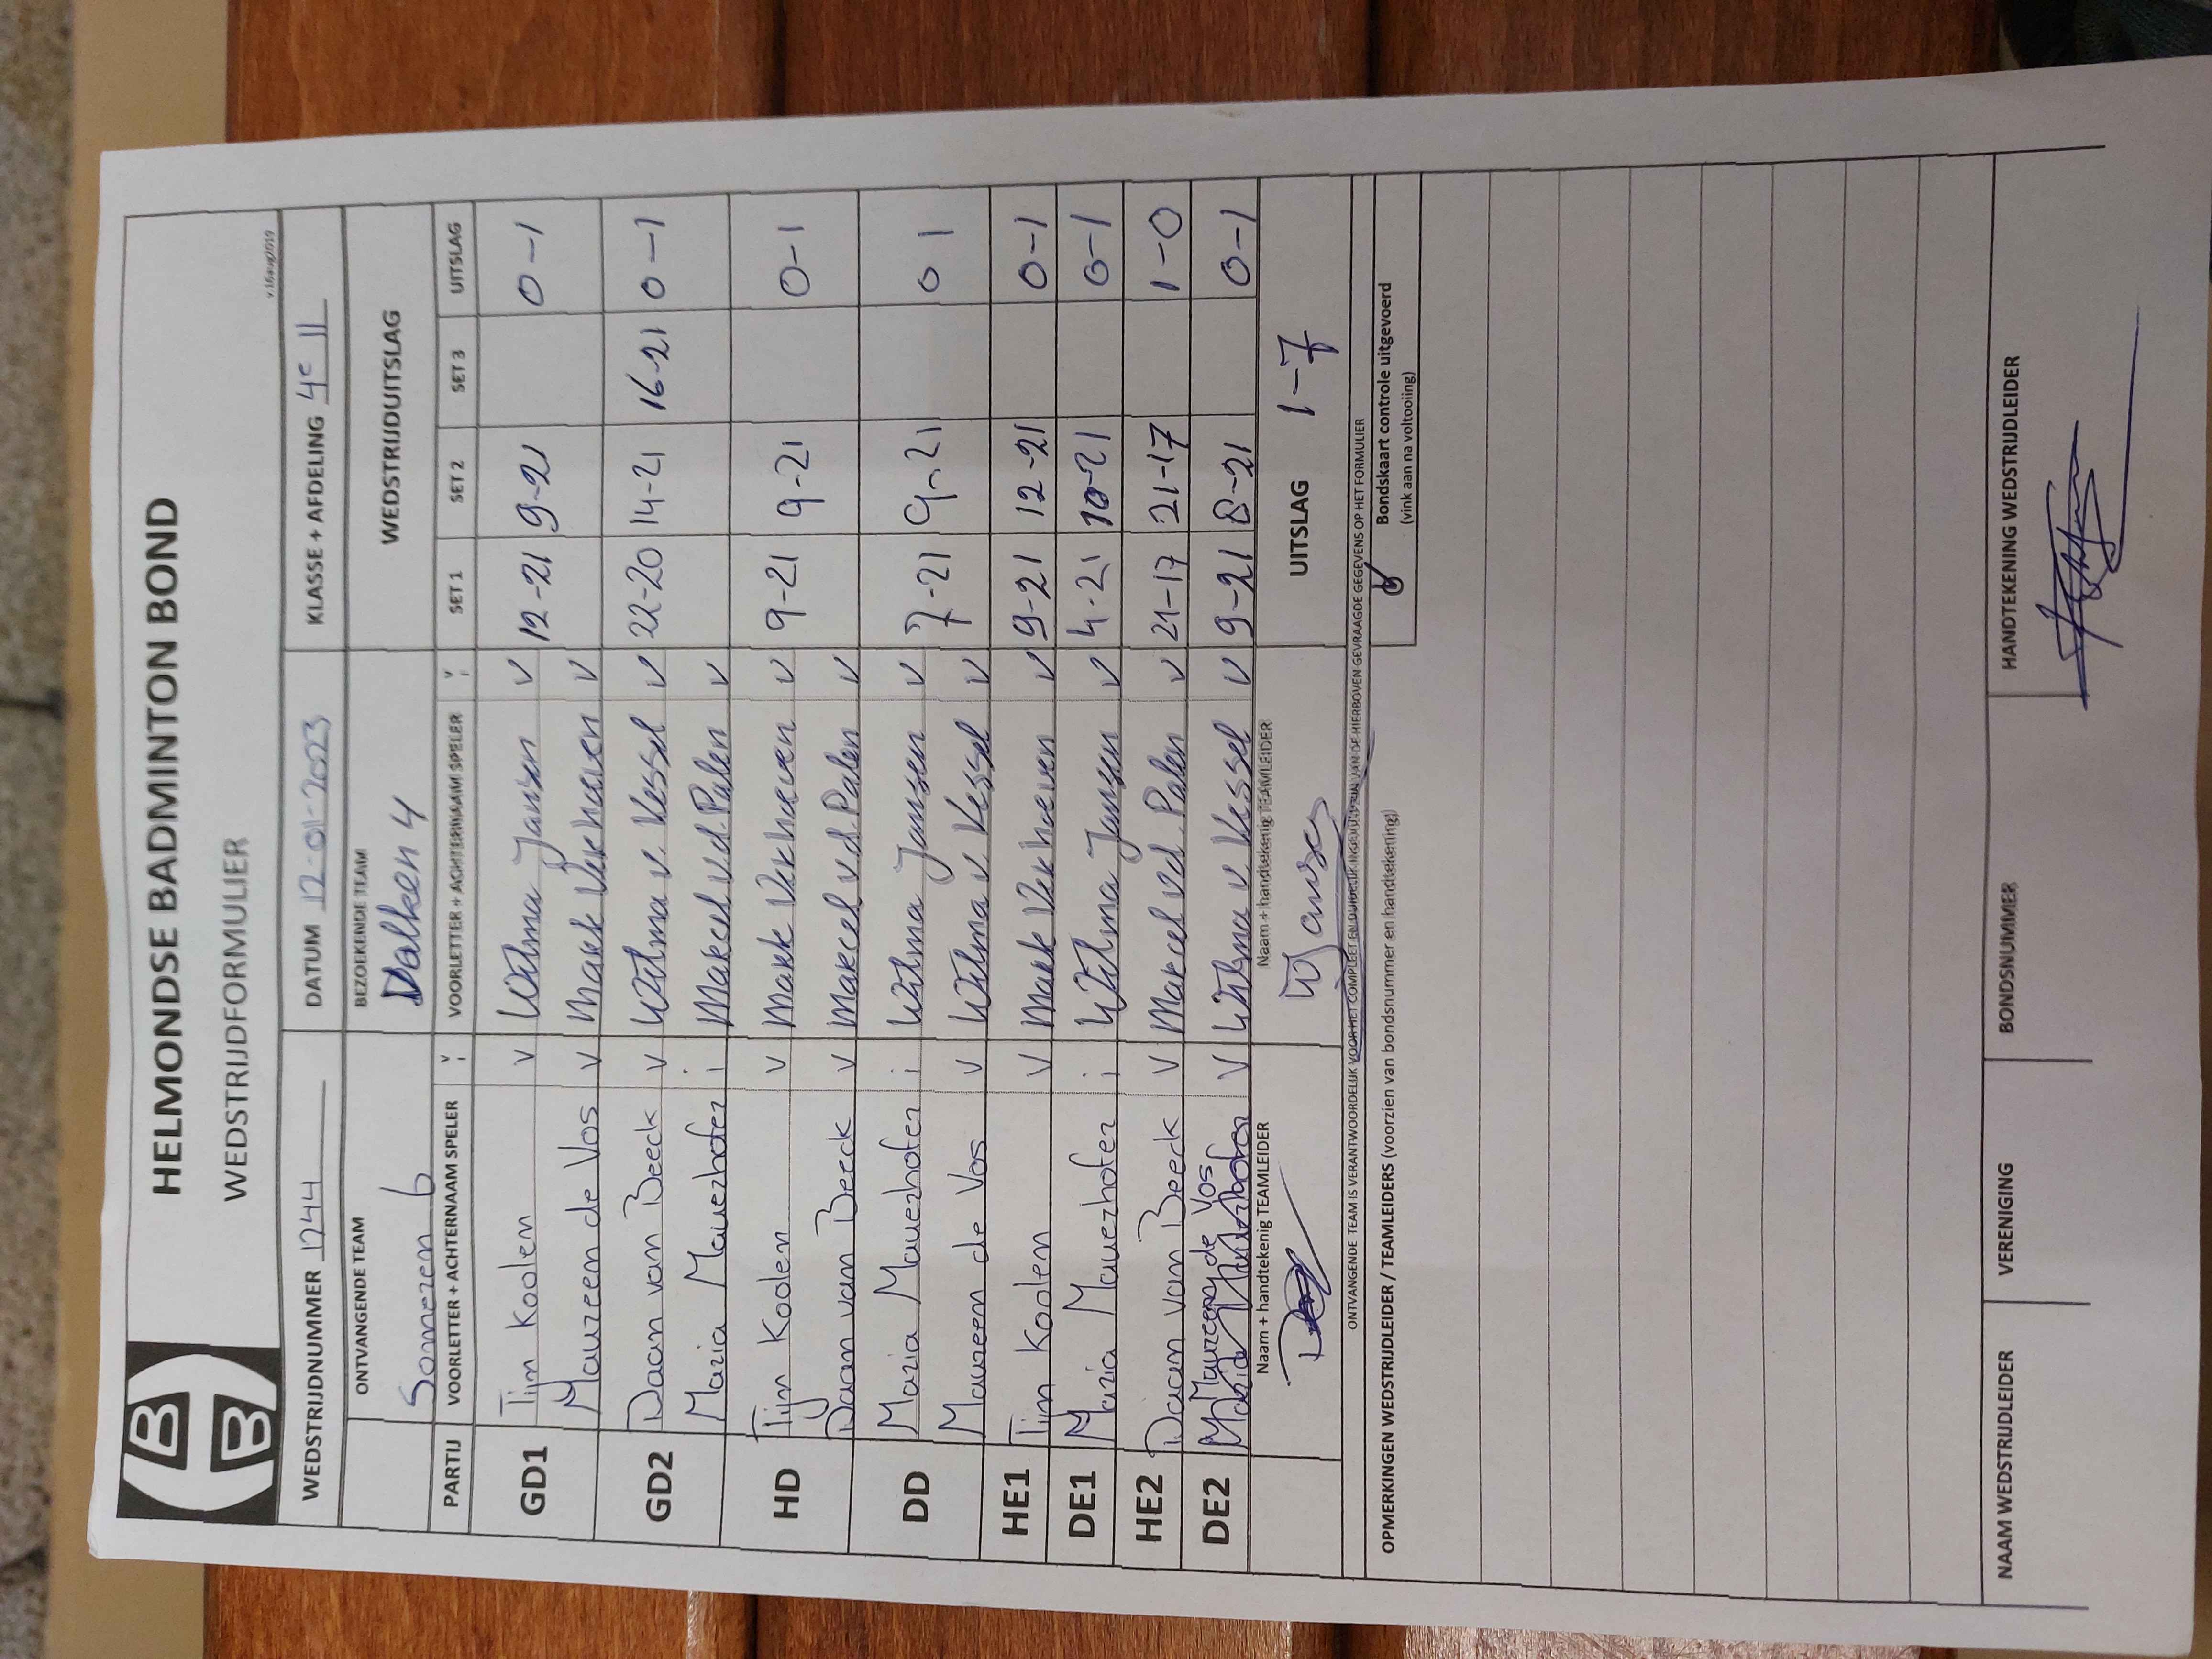 HELMONDSE BADMINTON BOND
WEDSTRIJDFORMULIER
v.16aug2019
WEDSTRIJDNUMMER 1244 DATUM 12-01-2023 KLASSE + AFDELING 4e II
ONTVANGENDE TEAM BEZOEKENDE TEAM WEDSTRIJDUITSLAG
Someren 6 Dalken 4
PARTIJ VOORLETTER + ACHTERNAAM SPELER V/I VOORLETTER + ACHTERNAAM SPELER V/I SET 1 SET 2 SET 3 UITSLAG
GD1 Tijn Koolen V Wilma Jansen V 12-21 9-21 0-1
Maureen de Vos V Mark Verhoeven V
GD2 Daan van Beeck V Wilma v. Kessel V 22-20 14-21 16-21 0-1
Maria Mauerhofer i Marcel v.d. Palen V
HD Tijn Koolen V Mark Verhoeven V 9-21 9-21 0-1
Daan van Beeck V Marcel v.d. Palen V
DD Maria Mauerhofer i Wilma Janssen V 7-21 9-21 0 1
Maureen de Vos V Wilma v. Kessel V
HE1 Tijn Koolen V Mark Verhoeven V 9-21 12-21 0-1
DE1 Maria Mauerhofer i Wilma Jansen V 4-21 10-21 0-1
HE2 Daan van Beeck V Marcel vd. Palen V 21-17 21-17 1-0
DE2 Maureen de Vos V Wilma v Kessel V 9-21 8-21 0-1
Naam + handtekenig TEAMLEIDER Naam + handtekenig TEAMLEIDER UITSLAG 1-7
WJansen
ONTVANGENDE TEAM IS VERANTWOORDELIJK VOOR HET COMPLEET EN DUIDELIJK INGEVULD ZIJN VAN DE HIERBOVEN GEVRAAGDE GEGEVENS OP HET FORMULIER
OPMERKINGEN WEDSTRIJDLEIDER / TEAMLEIDERS (voorzien van bondsnummer en handtekening)
Bondskaart controle uitgevoerd
(vink aan na voltooiing)
NAAM WEDSTRIJDLEIDER VERENIGING BONDSNUMMER HANDTEKENING WEDSTRIJDLEIDER